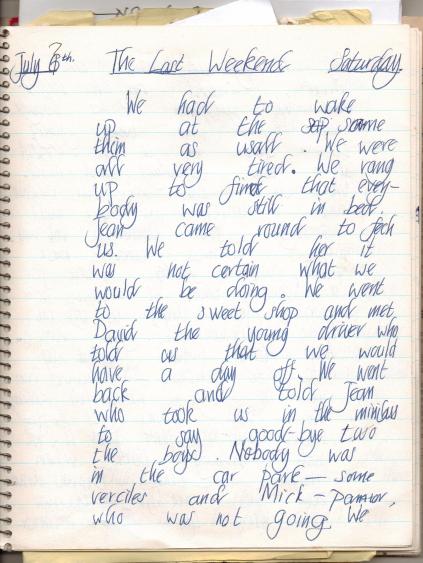 July 6th. The Last Weekend Saturday.
We had to wake
up at the same
thim as usall. We were
all very tired. We rang
up to find that evey-
body was still in bed.
Jean came round to fech
us. We told her it
was not certain what we
would be doing. We went
to the sweet shop and met
David the young driver who
told us that we would
have a day off. We went
back and told Jean
who took us in the minibus
to say good-bye two
the boys. Nobody was
in the car park — some
verciles and Mick —
who was not going. We